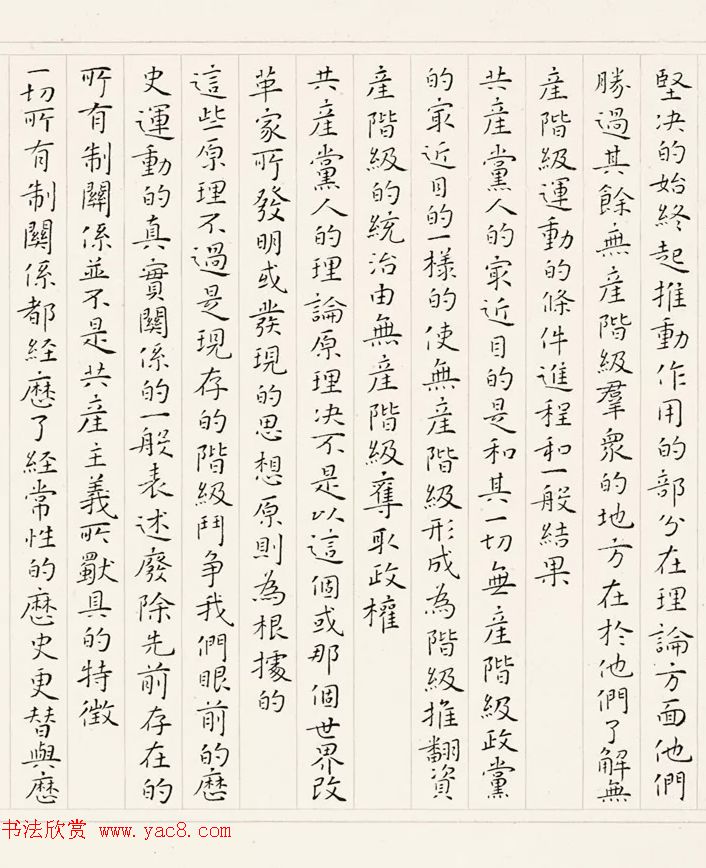 堅决的始終起推動作用的部分在理論方面他們
勝過其餘無産階級羣衆的地方在於他們了解無
産階級運動的條件進程和一般結果
共産黨人的冣近目的是和其一切無産階級政黨
的冣近目的一樣的使無産階級形成為階級推翻資
産階級的統治由無産階級奪取政權
共産黨人的理論原理决不是以這個或那個世界改
革家所發明或發現的思想原則為根據的
這些原理不過是現存的階級鬥争我們眼前的歷
史運動的真實關係的一般表述廢除先前存在的
所有制關係並不是共産主義所獻具的特徵
一切所有制關係都經歷了經常性的歷史更替與歷
书法欣赏 www.yac8.com